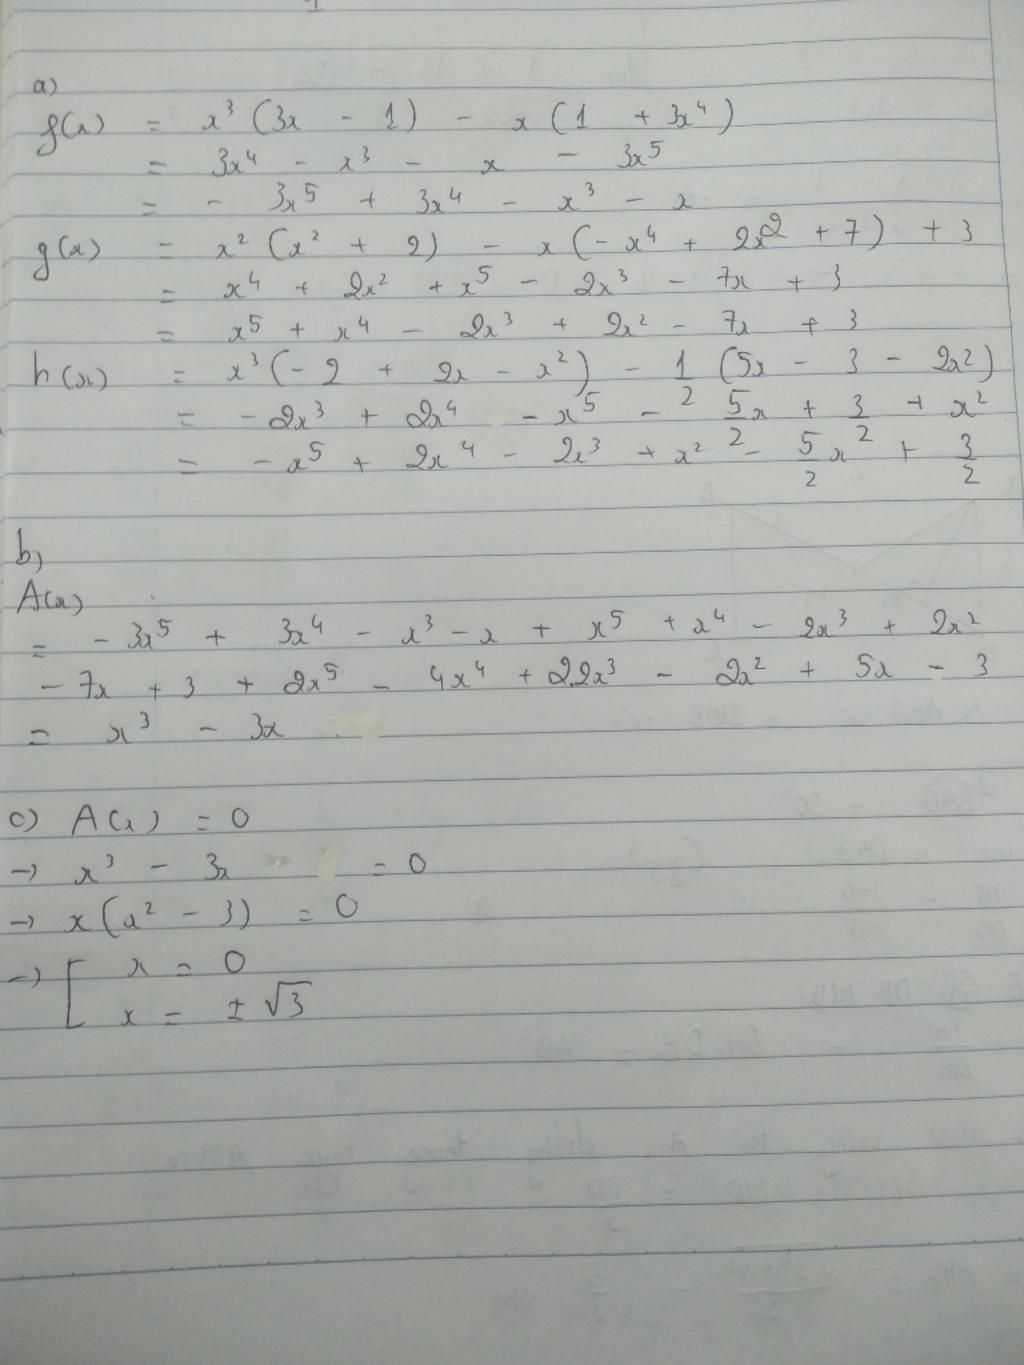 a)
f(x) = x³ (3x - 1) - x (1 + 3x⁴)
= 3x⁴ - x³ - x - 3x⁵
= - 3x⁵ + 3x⁴ - x³ - x
g(x) = x² (x² + 2) - x (- x⁴ + 2x² + 7) + 3
= x⁴ + 2x² + x⁵ - 2x³ - 7x + 3
= x⁵ + x⁴ - 2x³ + 2x² - 7x + 3
h(x) = x³ (- 2 + 2x - x²) - 1/2 (5x - 3 - 2x²)
= - 2x³ + 2x⁴ - x⁵ - 5/2 x + 3/2 + x²
= - x⁵ + 2x⁴ - 2x³ + x² - 5/2 x + 3/2
b)
A(x)
= - 3x⁵ + 3x⁴ - x³ - x + x⁵ + x⁴ - 2x³ + 2x²
- 7x + 3 + 2x⁵ - 4x⁴ + 2.2x³ - 2x² + 5x - 3
= x³ - 3x
c) A(x) = 0
→ x³ - 3x = 0
→ x (x² - 3) = 0
→ [ x = 0
x = ± √3